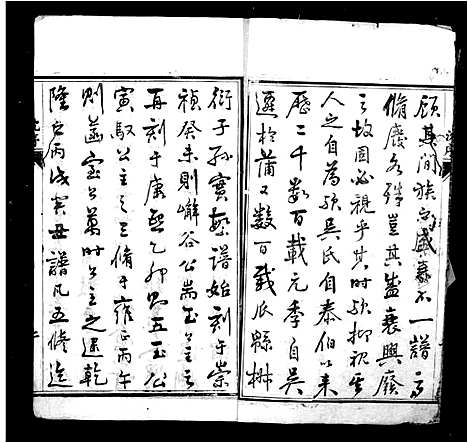 顧其間族之盛衰不一譜亦
脩廢各殊豈其盛衰興廢
之故固必視乎其時歟抑視其
人之自為歟吳氏自泰伯以來
歷二千數百載元季自吳
遷於蒲又數百載瓜縣椒
衍子孫實繁譜始刻于崇
禎癸未則嶰谷公端玉公主之
再刻于康熙乙卯則五玉公
寅馭公主之三脩于雍正丙午
則菡宓公萬時公主之逮乾
隆之丙戌實毋譜凡五脩迄